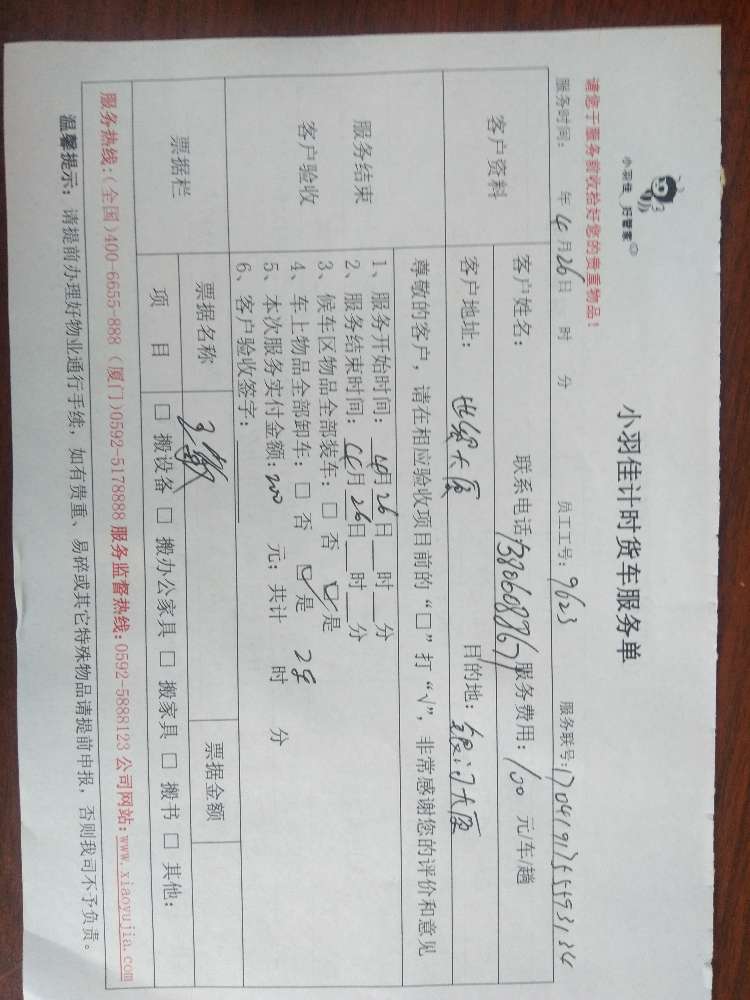 小羽佳 好管家
小羽佳计时货车服务单
请您于服务前收拾好您的贵重物品！
服务时间： 年4月26日 时 分 员工工号：9623 服务联号：
客户资料
客户姓名： 联系电话： 服务费用：100 元/车/趟
客户地址：世贸大厦 目的地：银门大厦
尊敬的客户，请在相应验收项目前的“□”打“√”，非常感谢您的评价和意见
服务结束
客户验收
1、服务开始时间：4月26日__时__分
2、服务结束时间：4月26日__时__分
3、候车区物品全部装车：□ 否 ☑是
4、车上物品全部卸车：□ 否 ☑是
5、本次服务实付金额：200 元；共计 2车 时 分
6、客户验收签字：
票据栏
票据名称 票据金额
项 目 □ 搬设备 □ 搬办公家具 □ 搬家具 □ 搬书 □ 其他：
服务热线：（全国）400-6655-888 （厦门）0592-5178888 服务监督热线：0592-5888123 公司网站：www.xiaoyujia.com
温馨提示：请提前办理好物业通行手续，如有贵重、易碎或其它特殊物品请提前申报，否则我司不予负责。